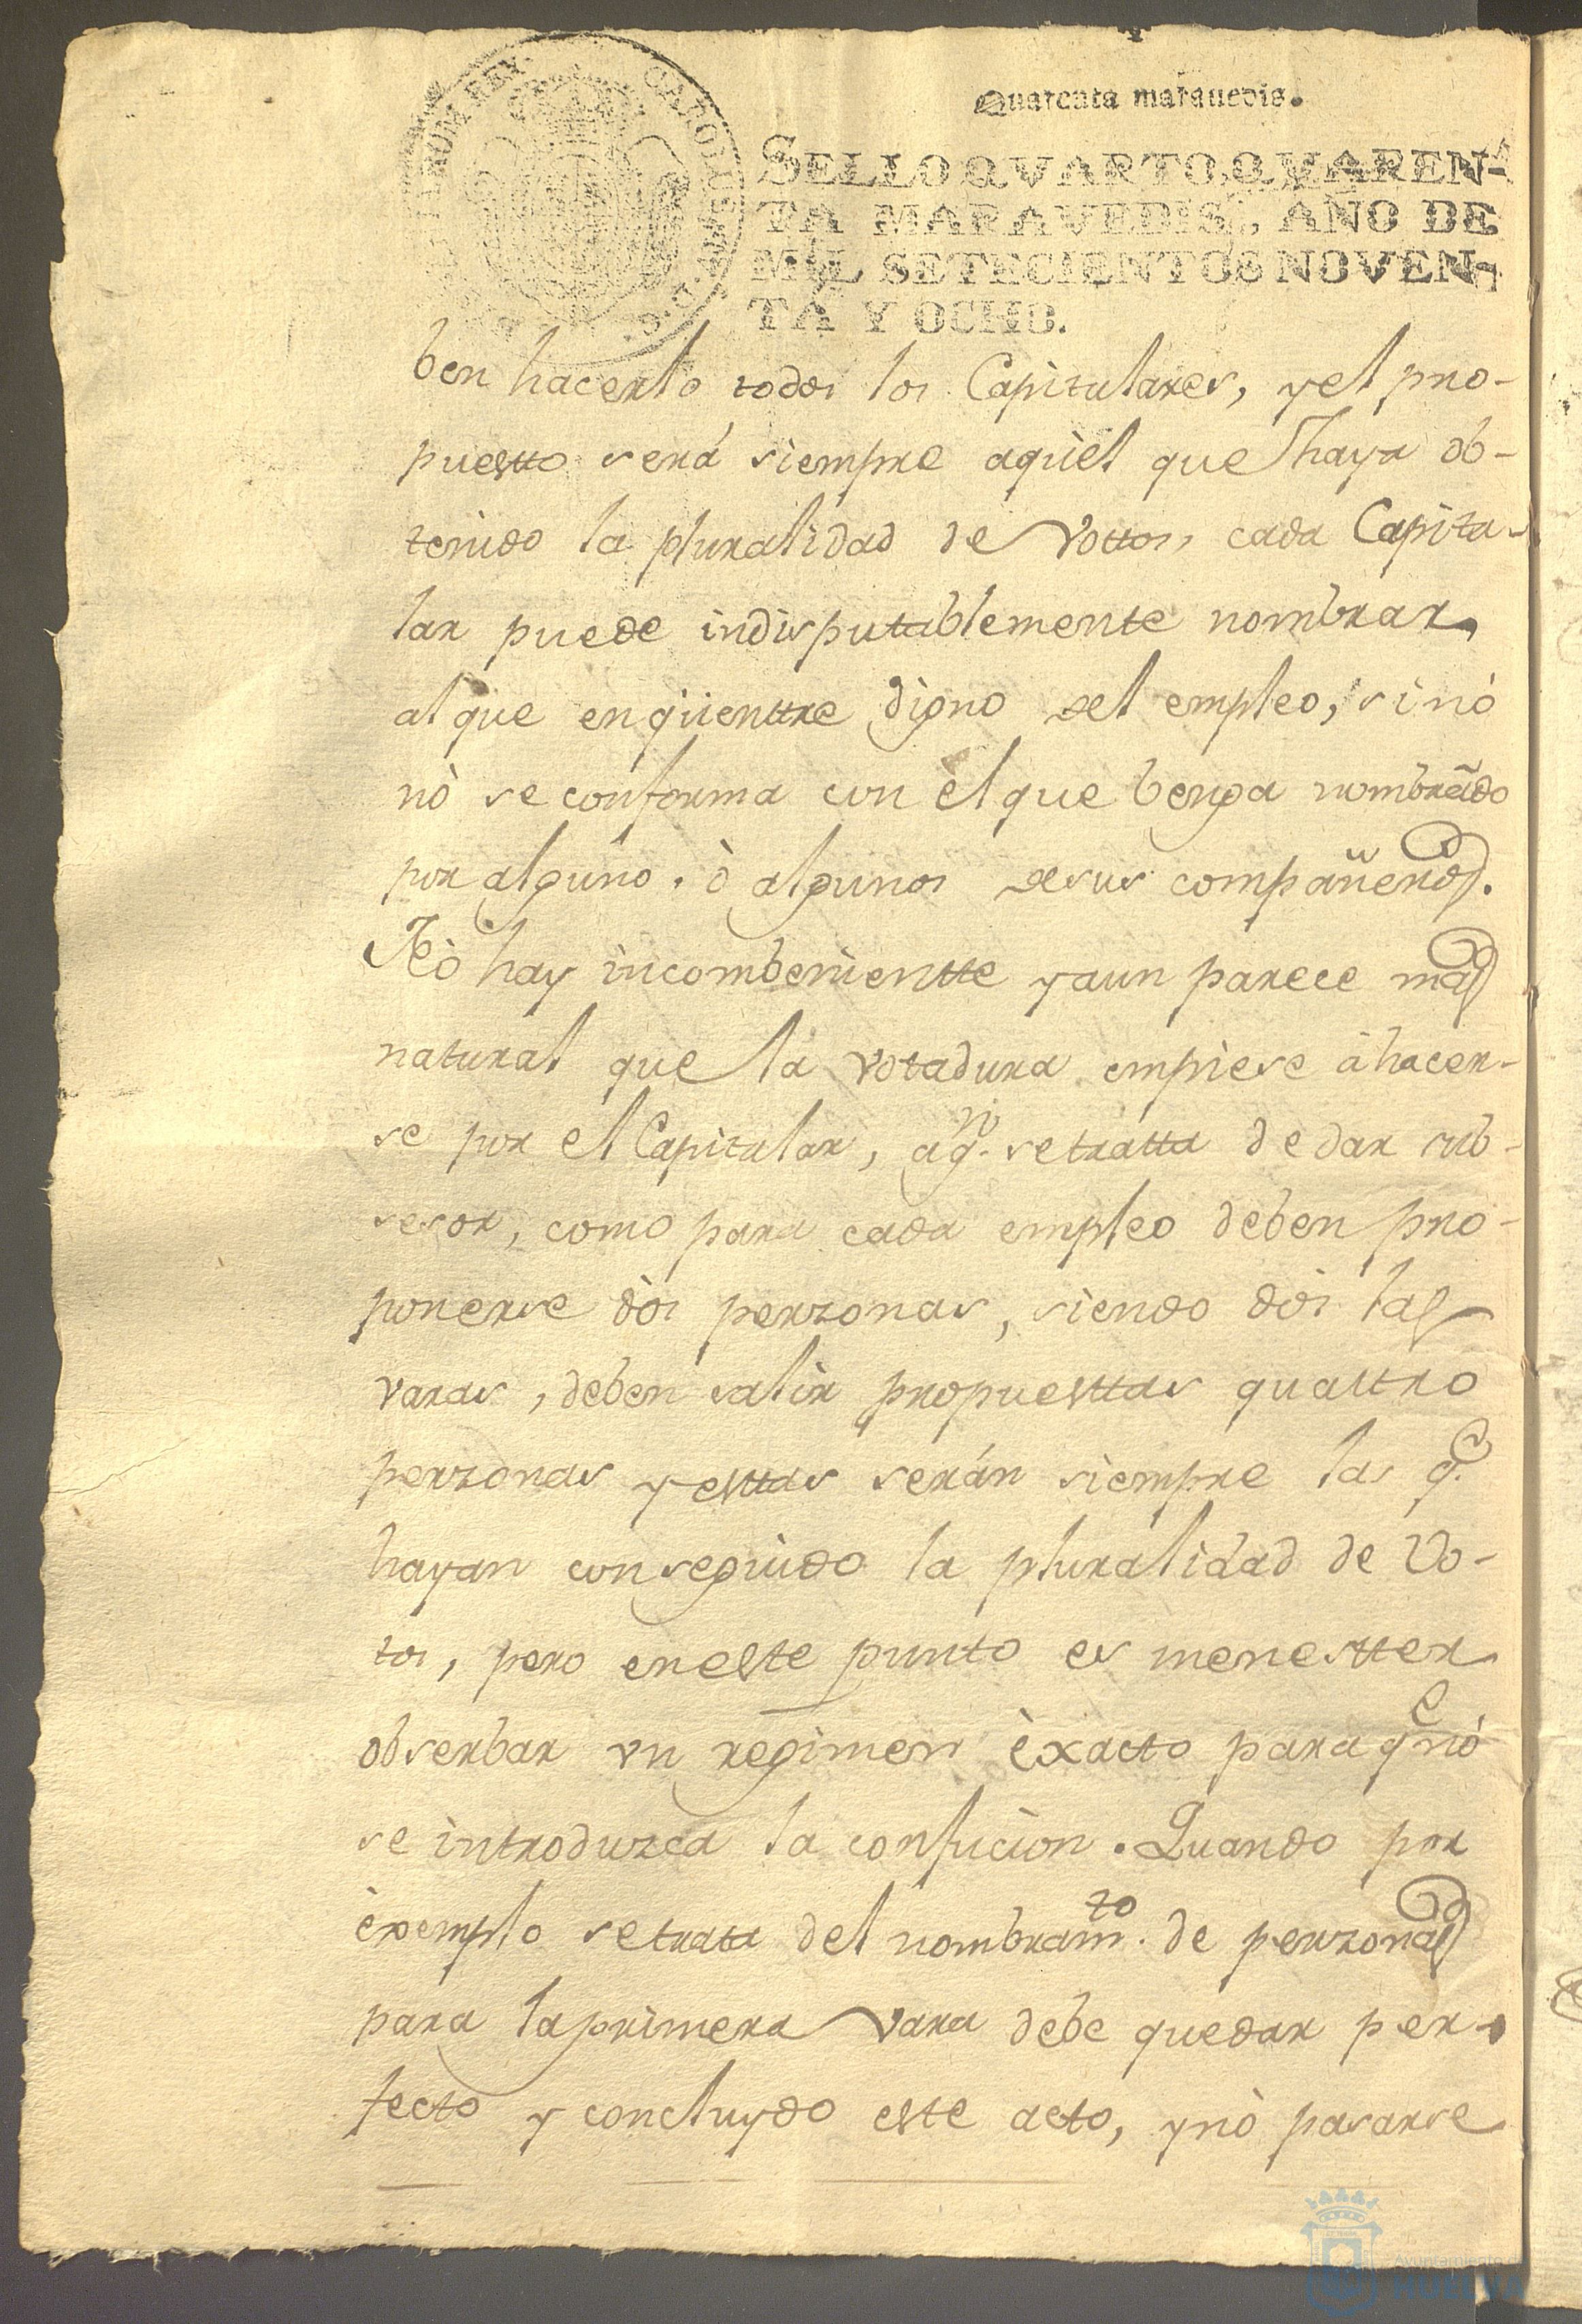 Quarenta marauedis.
SELLO QVARTO, QVAREN-
TA MARAVEDIS, AÑO DE
MIL SETECIENTOS NOVEN-
TA Y OCHO.
ben hacerlo todos los Capitulares, y el pro-
puestto será siempre aquèl que haya ob-
tenido la pluralidad de Vottos, cada Capitu-
lar puede indisputablemente nombrar
al que enqüenttre digno del empleo, si nó
nò se conforma con èl que benga nombrado
por alguno, ò algunos de sus compañeros.
Nò hay incombenientte y aun parece mas
natural que la votadura empiese à hacer-
se por el Capitular, a qn. se tratta de dar sub-
sesor, como para cada empleo deben pro-
ponerse dòs perzonas, siendo dòs las
varas, deben salir propuesttas quattro
perzonas y esttas serán siempre las qe.
hayan conseguido la pluralidad de Vo-
tos, pero en este punto es menestter
obserbar un regimen èxacto para qe nó
se introduzca la confucion. Quando por
èxemplo se trata del nombramto. de perzonas
para la primera vara debe quedar per-
fecto y concluydo este acto, y nò pasarse
Ayuntamiento de
HUELVA